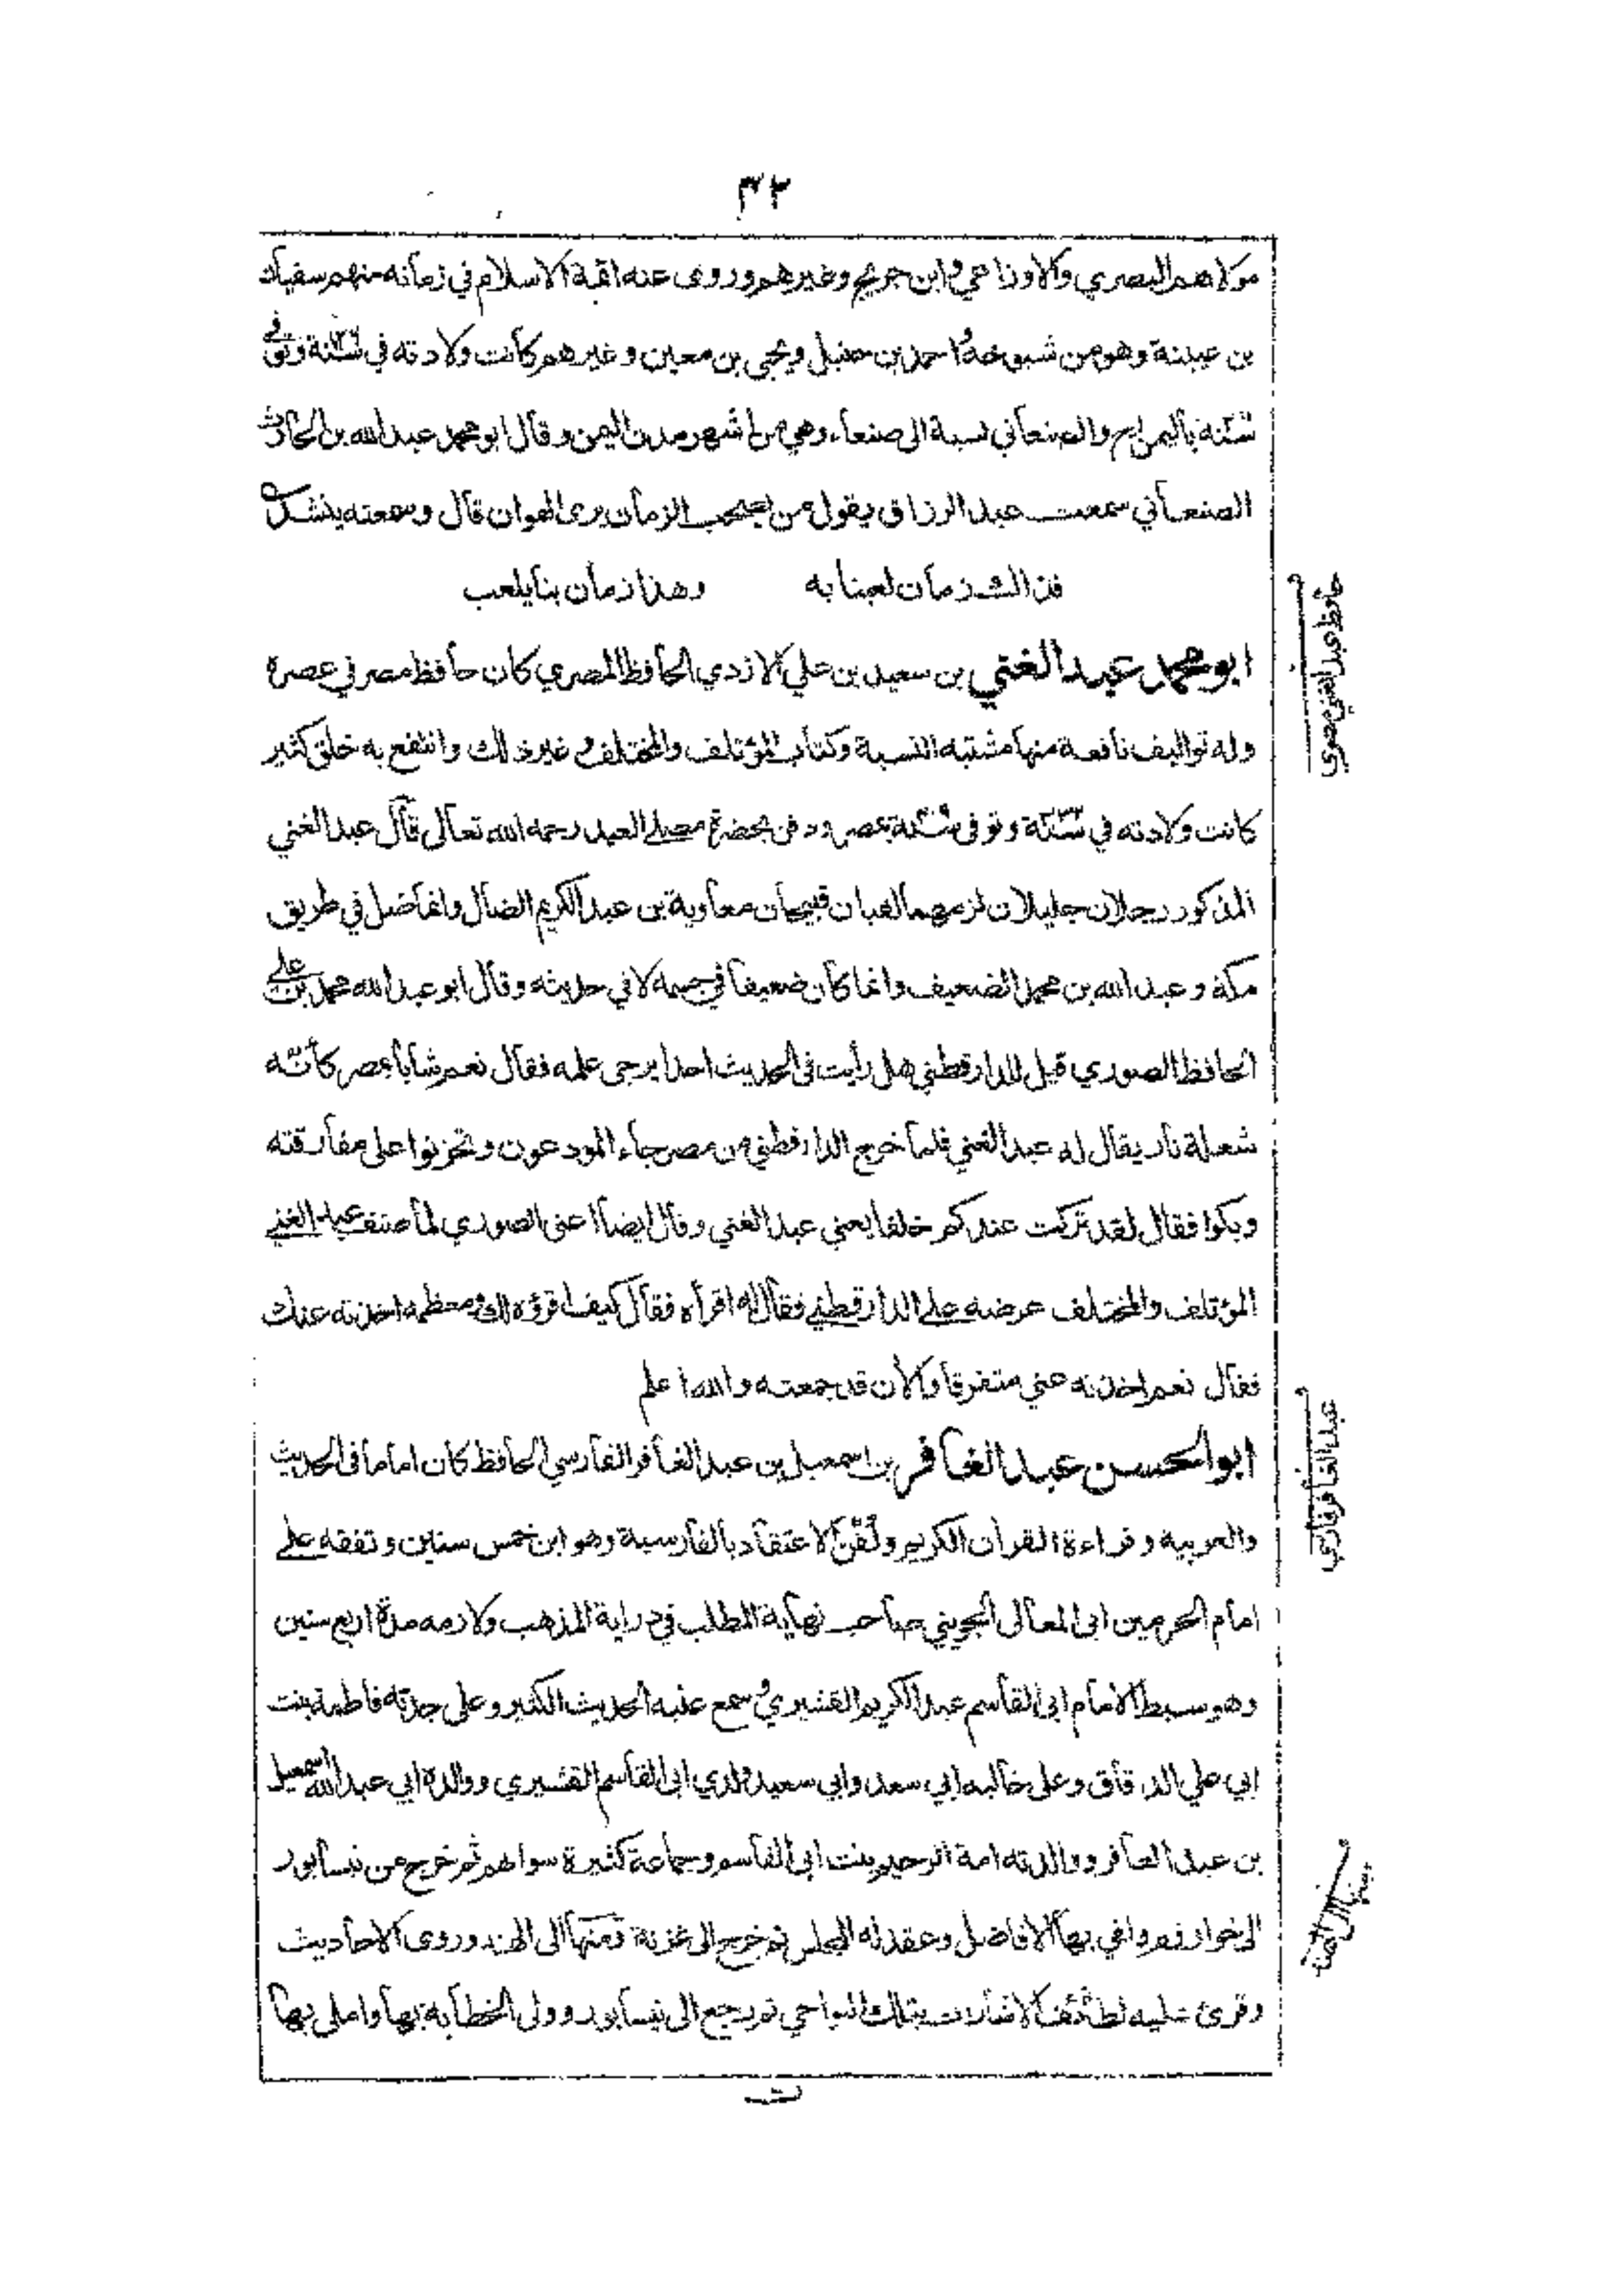 ٣٢
مولاهم البصري والاوزاعي وابن جريج وغيرهم وروى عنه ائمة الاسلام في زمانه منهم سفيان
بن عيينة وهو من شيوخه واحمد بن حنبل ويحيى بن معين وغيرهم كانت ولادته في سنة وتوفي
سنة باليمن والصنعاني نسبة الى صنعاء وهي من اشهر مدن اليمن وقال ابو محمد عبد الله بن الحارث
الصنعاني سمعت عبد الرزاق يقول من يصحب الزمان يرى الهوان قال وسمعته ينشد
فذاك زمان لعبنا به وهذا زمان بنا يلعب
ابو محمد عبد الغني بن سعيد بن علي الازدي الحافظ المصري كان حافظ مصر في عصره
وله تواليف نافعة منها مشتبه النسبة وكتاب المؤتلف والمختلف وغير ذلك وانتفع به خلق كثير
كانت ولادته في سنة وتوفى سنة بمصر ودفن بحضرة مصلى العيد رحمه الله تعالى قال عبد الغني
المذكور رجلان جليلان لزمهما لقبان قبيحان معاوية بن عبد الكريم الضال وانما ضل في طريق
مكة وعبد الله بن محمد الضعيف وانما كان ضعيفا في جسمه لا في حديثه وقال ابو عبد الله محمد بن علي
الحافظ الصوري قيل للدارقطني هل رأيت في الحديث احدا يرجى علمه فقال نعم شابا بمصر كأنه
شعلة نار يقال له عبد الغني فلما خرج الدارقطني من مصر جاء المودعون وتحزنوا على مفارقته
وبكوا فقال لقد تركت عندكم خلفا يعني عبد الغني وقال ايضا اعني الصوري لما صنف عبد الغني
المؤتلف والمختلف عرضه على الدارقطني فقال له اقرأه فقال كيف اقرؤه لك ومعظمه اخذته عنك
فقال نعم اخذته عني متفرقا والأن قد جمعته والله اعلم
ابو الحسن عبد الغافر بن اسمعيل بن عبد الغافر الفارسي الحافظ كان اماما في الحديث
والعربيه وقراءة القران الكريم ولقن الاعتقاد بالفارسية وهو ابن خمس سنين وتفقه على
امام الحرمين ابى المعالى الجويني صاحب نهاية المطلب في دراية المذهب ولازمه مدة اربع سنين
وهو سبط الامام ابى القاسم عبد الكريم القشيري وسمع عليه الحديث الكثير وعلى جدته فاطمة بنت
ابي علي الدقاق وعلى خاليه ابي سعد وابي سعيد ولدي ابى القاسم القشيري ووالده ابي عبد الله اسمعيل
بن عبد الغافر ووالدته امة الرحيم بنت ابى القاسم وجماعة كثيرة سواهم ثم خرج من نيسابور
الى خوارزم ولقي بها الافاضل وعقد له المجلس ثم خرج الى غزنة ومنها الى الهند وروى الاحاديث
وقرئ عليه لطائف الاشارات بتلك النواحي ثم رجع الى نيسابور وولى الخطابة بها واملى بها
حافظ عبد الغني مصري
عبد الغافر فارسي